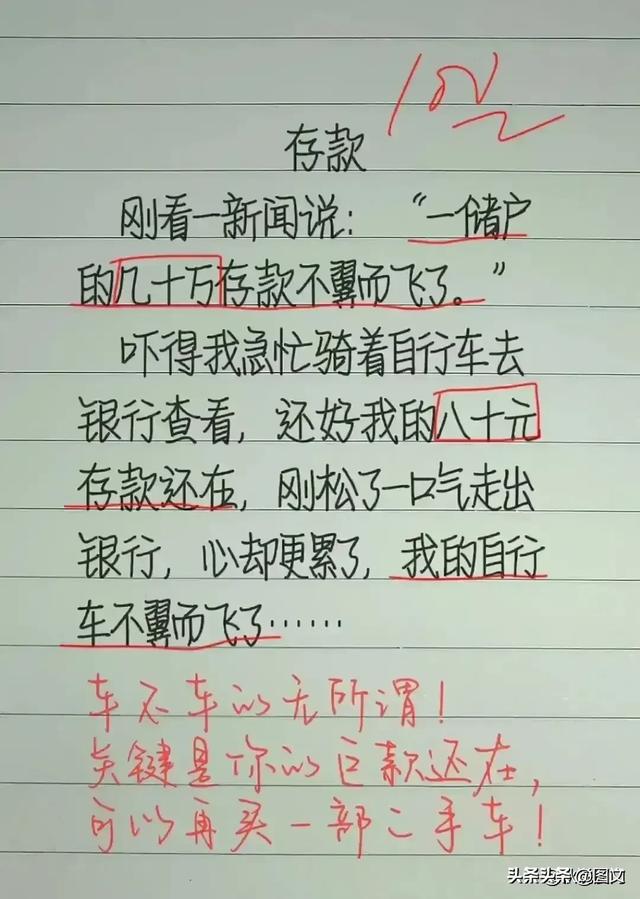 100
存款
刚看一新闻说：“一储户
的几十万存款不翼而飞了。”
吓得我急忙骑着自行车去
银行查看，还好我的八十元
存款还在，刚松了一口气走出
银行，心却更累了，我的自行
车不翼而飞了……
车不车的无所谓！
关键是你的巨款还在，
可以再买一部二手车！
头条头条 @图文